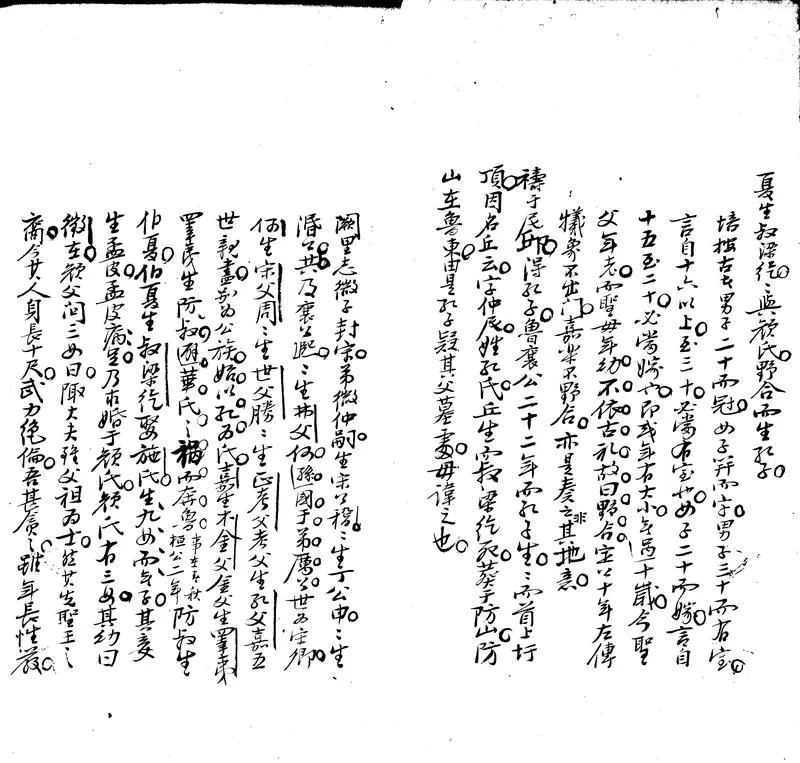 夏生叔梁紇與顏氏野合而生孔子
培按古者男子二十而冠女子笄而字男子三十而有室
言自十六以上至三十必當有室也女子二十而嫁言自
十五至二十必當嫁也即或年有大小年過十歲今聖
父年老而聖母年幼不依古礼故曰野合定公十年左傳
犧象不出門嘉樂不野合亦是奏之非其地意
禱于尼邱得孔子魯襄公二十二年而孔子生〻而首上圩
頂因名丘云字仲尼姓孔氏丘生而叔梁紇死葬于防山防
山在魯東由是孔子疑其父墓處母諱之也
闕里志微子封宋弟微仲嗣生宋公稽〻生丁公申〻生
湣公共及襄公熙〻生弗父何孫國于弟厲公世为宋卿
何生宋父周〻生世父勝〻生正考父考父生孔父嘉五
世親盡别为公族始以孔为氏嘉生木金父金父生睪夷
睪夷生防叔避華氏之禍而奔魯事在春秋桓公二年防叔生
伯夏伯夏生叔梁紇娶施氏生九女而無子其妾
生孟皮孟皮病足乃求婚于顏氏顏氏有三女其幼曰
徵在顏父问三女曰陬大夫雖父祖为士然其先聖王之
裔今其人身長十尺武力絶倫吾甚貪之雖年長性嚴